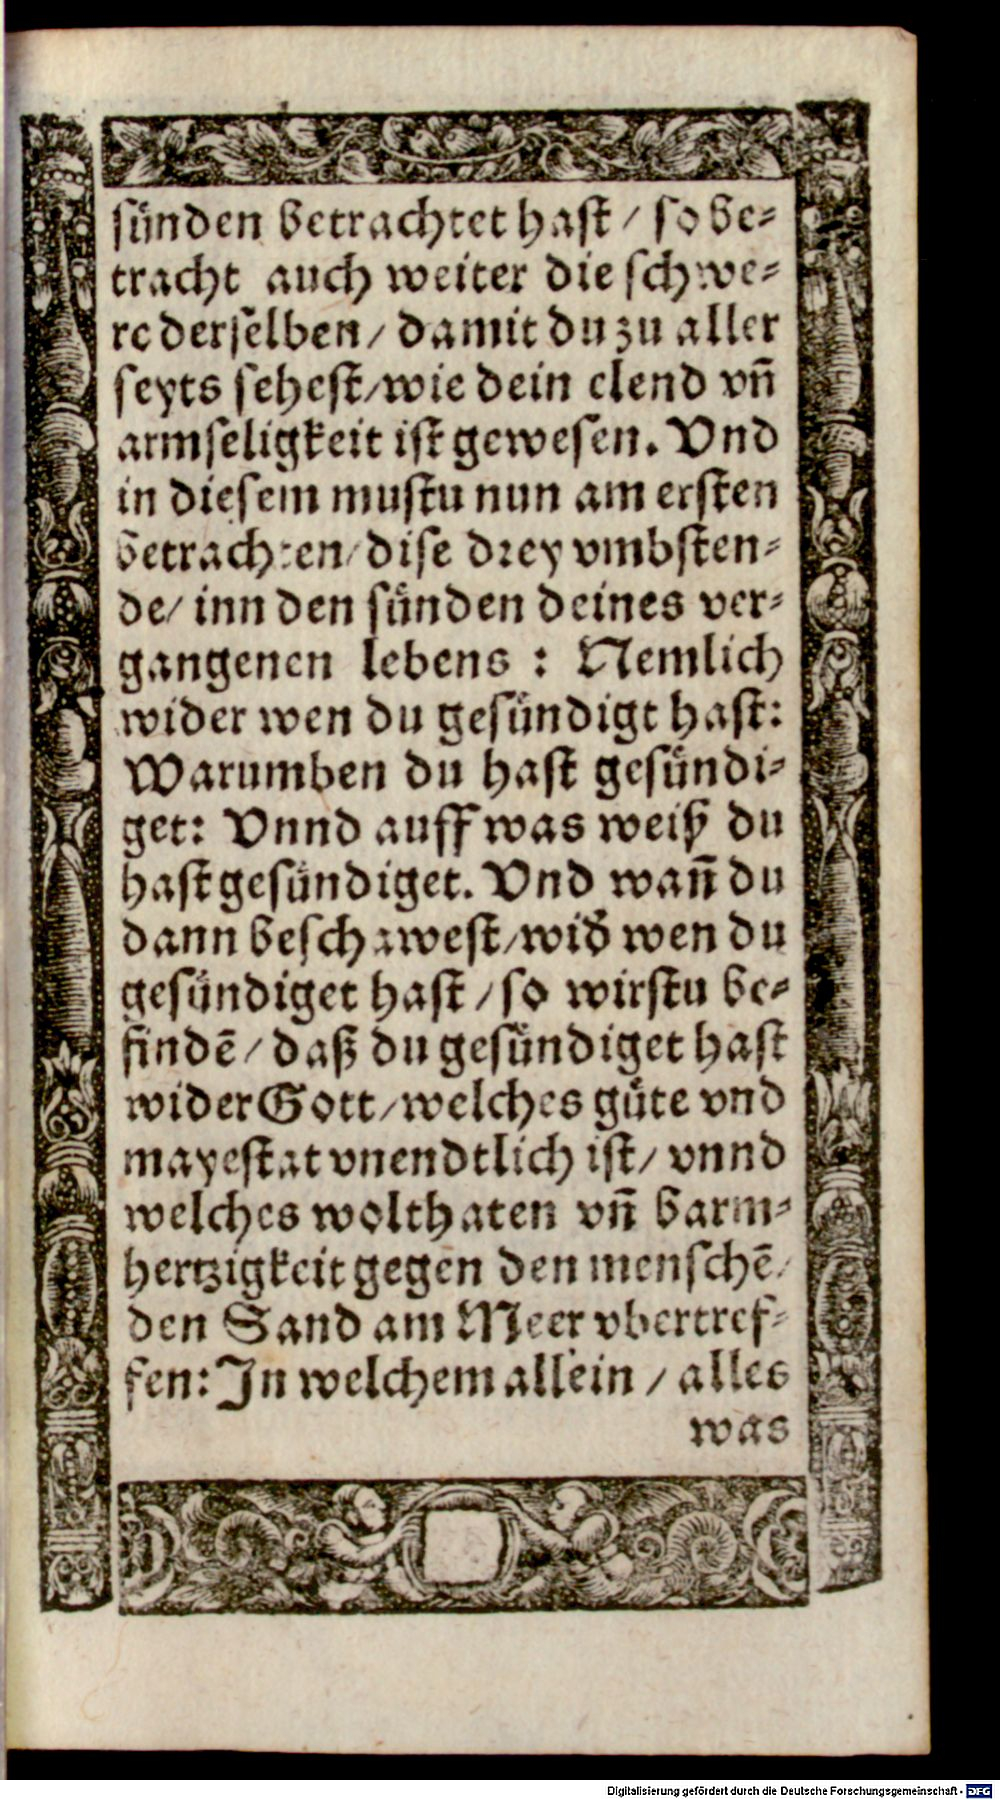 sünden betrachtet hast / so be⸗
tracht auch weiter die schwe⸗
re derselben / damit du zu aller
seyts sehest / wie dein elend vñ
armseligkeit ist gewesen. Vnd
in diesem mustu nun am ersten
betrachten / dise drey vmbsten⸗
de / inn den sünden deines ver⸗
gangenen lebens : Nemlich
wider wen du gesündigt hast:
Warumben du hast gesündi⸗
get: Vnnd auff was weiß du
hast gesündiget. Vnd wañ du
dann beschawest / wid̕ wen du
gesündiget hast / so wirstu be⸗
findē / daß du gesündiget hast
wider Gott / welches güte vnd
mayestat vnendtlich ist / vnnd
welches wolthaten vñ barm⸗
hertzigkeit gegen den menschē /
den Sand am Meer vbertref⸗
fen: In welchem allein / alles
was
Digitalisierung gefördert durch die Deutsche Forschungsgemeinschaft - DFG